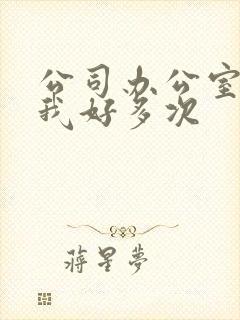 公司办公室
我好多次
蒋星梦